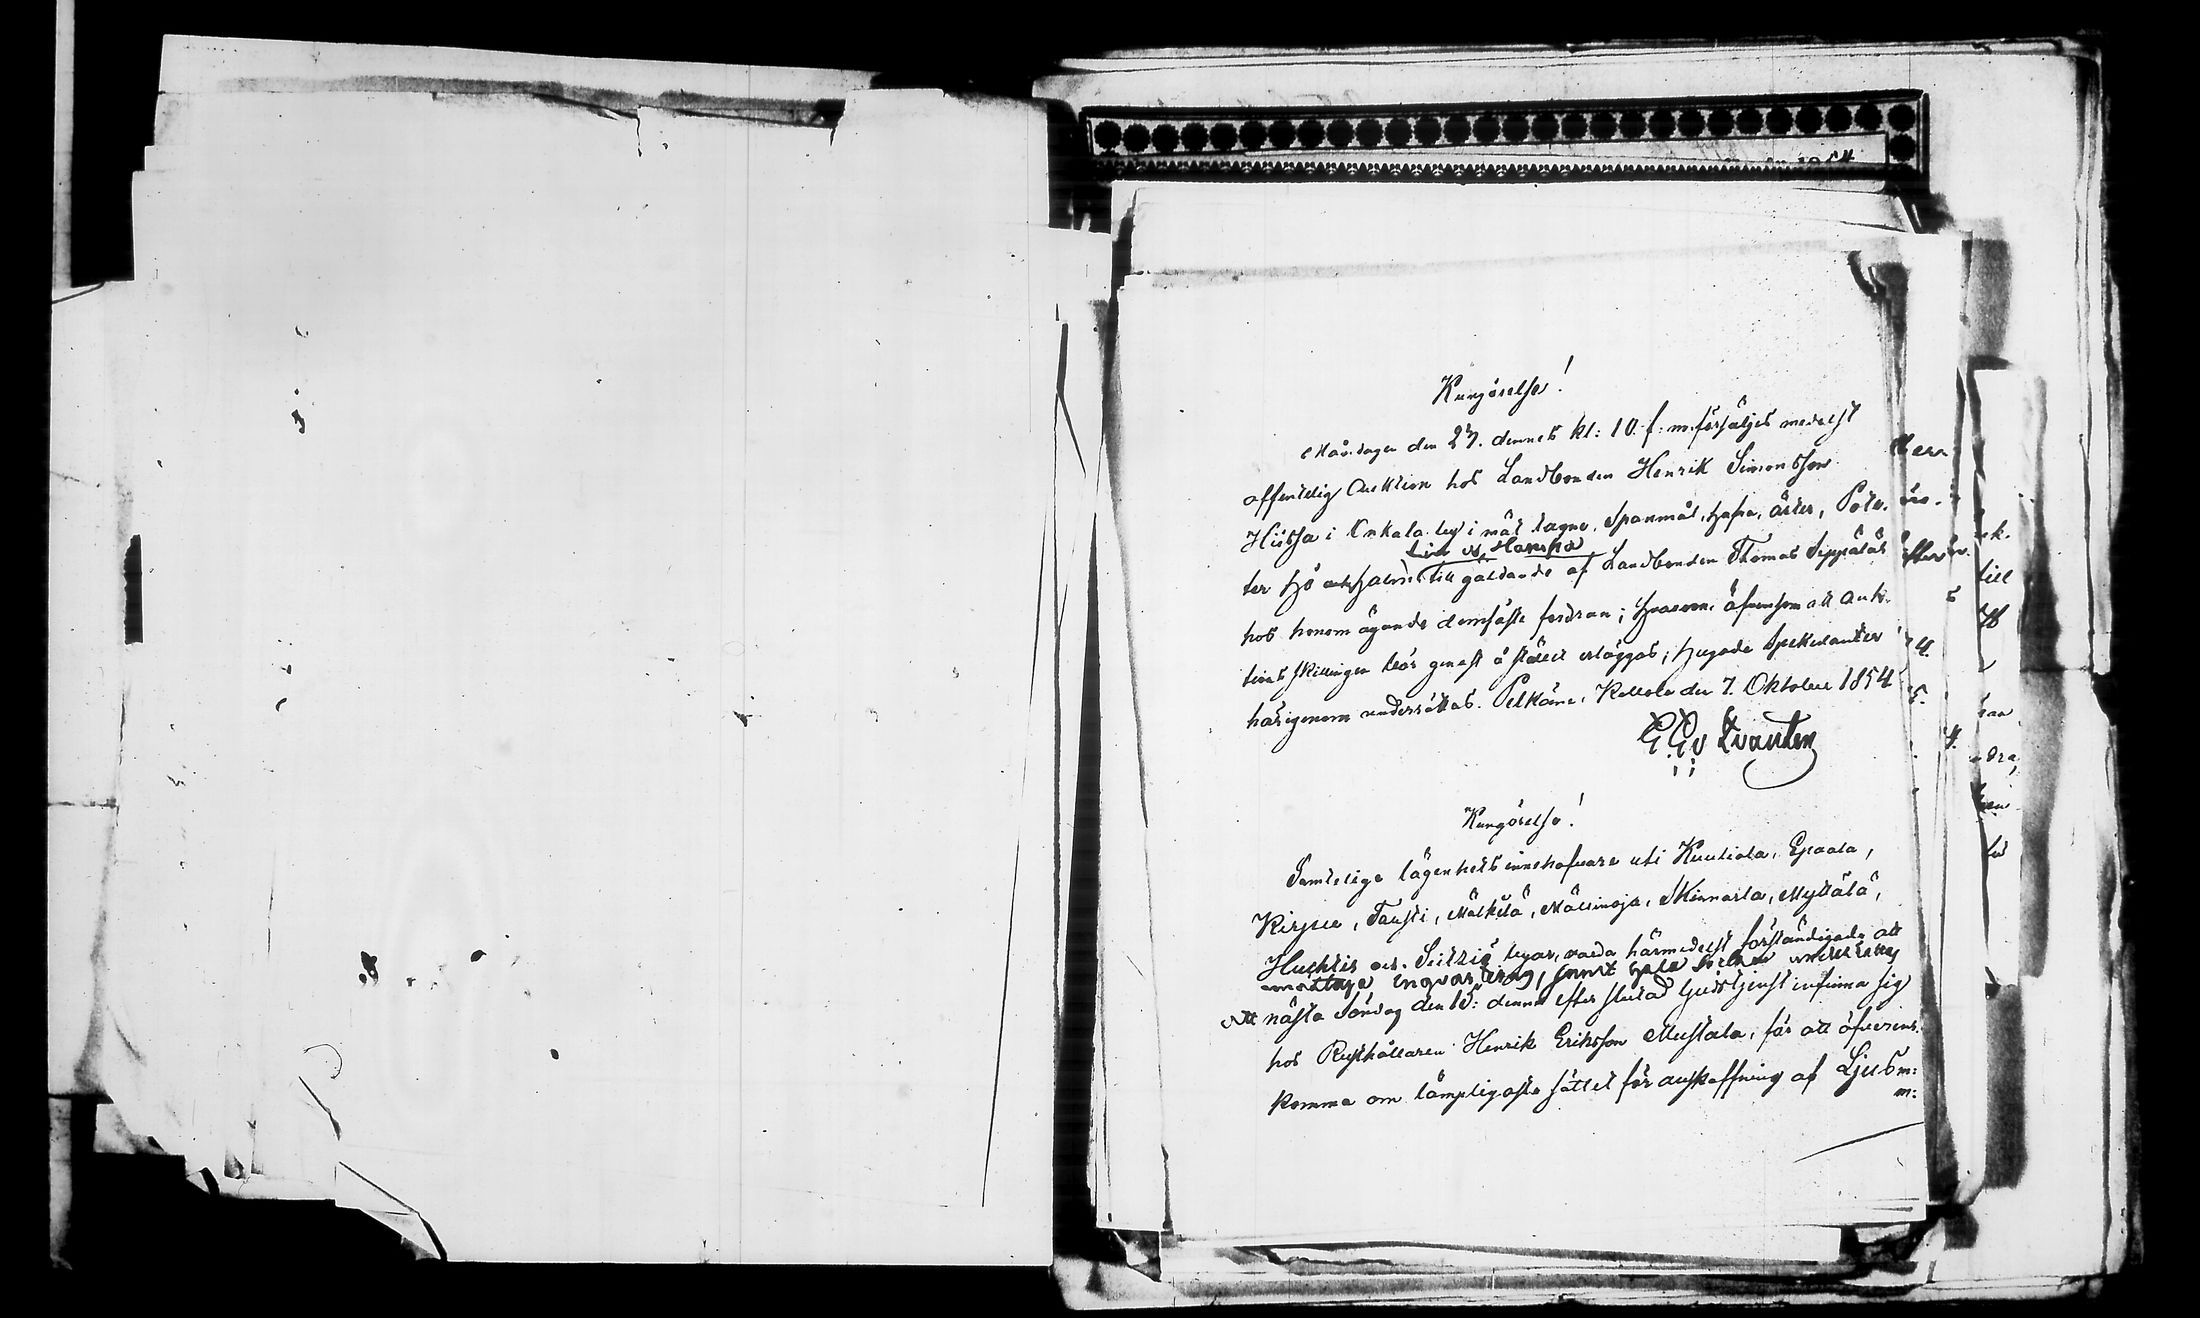 Kungörelse!
Måndagen den 27. dennes kl: 10. f: m. försäljes medelst
offentelig Auktion hos Landbonden Henrik Simonsson
Hiissa i Onkala by i mät tagne, Spanmål, hafra, ärter, Potä-
ter hö och halm
Lin o Hampa
till gäldande af Landbonden Thomas Seppäläs
hos honom ägande domfäste fordran; hvarom äfvensom att auk-
tions skillingen bör genast å stället erläggas; hugade Spekulanter
härigenom underrättas. Pelkäne, Kollola den 7. Oktober 1854
G. G. v Qvanten
Kungörelse!
Samtelige lägenhets innehafvare uti Kuuliala, Epaala,
Kirpu, Tausti, Mälkilä, Mällinoja, Skinnarla, Myttälä,
Huchtis och Seitzis byar, varda härmedelst förständigade att
emottaga inqvartering, samt
att nästa Söndag den 15: dennes efter slutad Gudstjenst infinna sig
hos Rusthållaren Henrik Eriksson Mustala, för att öfverens-
komma om lämpligaste sättet för anskaffning af Ljus m:
m: